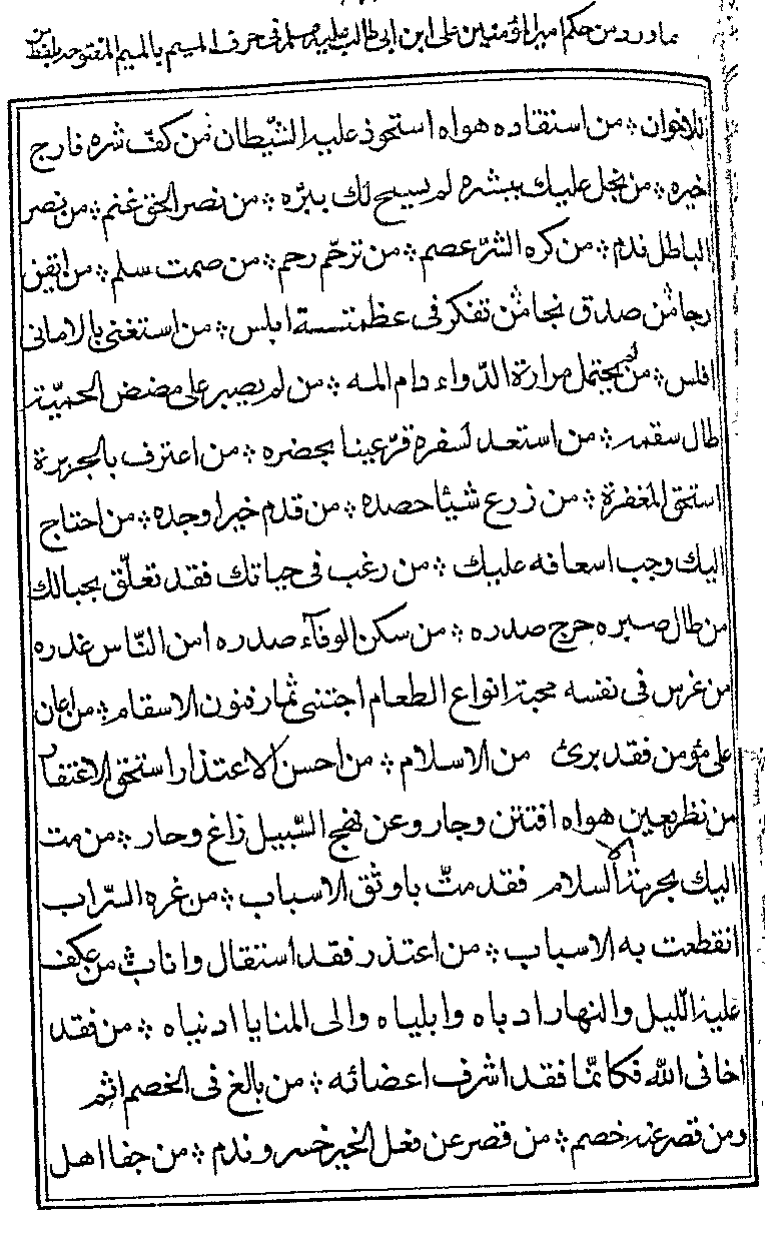 مما ورد من حكم امير المؤمنين على ابن ابى طالب عليه سلم فى حرف الميم بالميم المفتوحه بلفظ من
للاخوان ؞ من استقاده هواه استحوذ عليه الشيطان من كفّ شره فارج
خيره ؞ من بخل عليك ببشره لم يسمح لك ببرّه ؞ من نصر الحق غنم ؞ من نصر
الباطل ندم ؞ من كره الشرّ عصم ؞ من ترحّم رحم ؞ من صمت سلم ؞ من ايقن
رجا من صدق نجا من تفكر فى عظمته ابلس ؞ من استغنى بالامانى
افلس ؞ من لم يحتمل مرارة الدّواء دام المه ؞ من لم يصبر على مضض الحميّة
طال سقمه ؞ من استعد لسفره قرّ عينا بحضره ؞ من اعترف بالجريرة
استحق المغفرة ؞ من زرع شيئا حصده ؞ من قدم خيرا وجده ؞ من احتاج
اليك وجب اسعافه عليك ؞ من رغب فى حياتك فقد تعلّق بحبالك
من طال صبره حرج صدره ؞ من سكن الوفاء صدره امن النّاس غدره
من غرس فى نفسه محبة انواع الطعام اجتنى ثمار فنون الاسقام ؞ من اعان
على مؤمن فقد برئ من الاسلام ؞ من احسن الاعتذار استحق الاغتفار
من نظر بعين هواه افتتن وجار وعن نهج السّبيل زاغ وحار ؞ من مت
اليك بحرمة الاسلام فقد متّ باوثق الاسباب ؞ من غره السّراب
انقطعت به الاسباب ؞ من اعتذر فقد استقال واناب ؞ من عكف
عليه اللّيل والنهار ادباه وابلياه والى المنايا ادنياه ؞ من فقد
اخا فى الله فكانّما فقد اشرف اعضائه ؞ من بالغ فى الخصم اثم
ومن قصر عنه خصم ؞ من قصر عن فعل الخير خسر وندم ؞ من جفا اهل